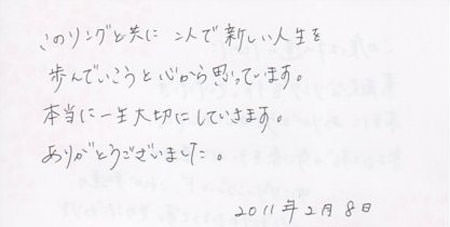 このリングと共に 二人で新しい人生を
歩んでいこうと心から思っています。
本当に一生大切にしていきます。
ありがとうございました。
2011年2月8日